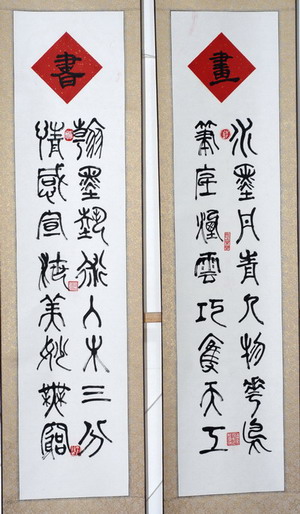 畫
水墨丹青人物花鳥
筆底煙雲巧奪天工
書
翰墨藝術入木三分
情感宣洩美妙無窮